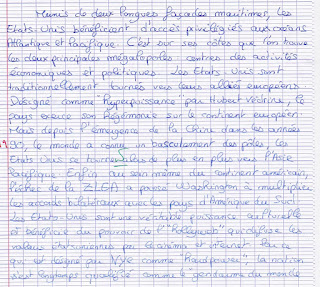 Munis de deux longues façades maritimes, les
Etats-Unis bénéficient d'accès privilégiés aux océans
Atlantique et Pacifique. C'est sur ses côtes que l'on trouve
les deux principales mégalopoles centres des activités
économiques et politiques. Les Etats-Unis sont
traditionnellement tournés vers leurs alliés européens.
Désigné comme "hyperpuissance" par Hubert Védrine, le
pays exerce son hégémonie sur le continent européen.
Mais depuis l'émergence de la Chine dans les années
90, le monde a connu un basculement des pôles, les
Etats-Unis se tournent de plus en plus vers l'Asie
Pacifique. Enfin au sein même du continent américain,
l'échec de la ZLEA a poussé Washington à multiplier
les accords bilatéraux avec les pays d'Amérique du Sud.
Les Etats-Unis sont une véritable puissance culturelle
et bénéficie du pouvoir de l'"Hollywood" qui diffuse les
valeurs étatsuniennes par le cinéma et internet. Par ce
qui est désigné par Nye comme "hard power", la nation
s'est longtemps qualifiée comme le "gendarme du monde